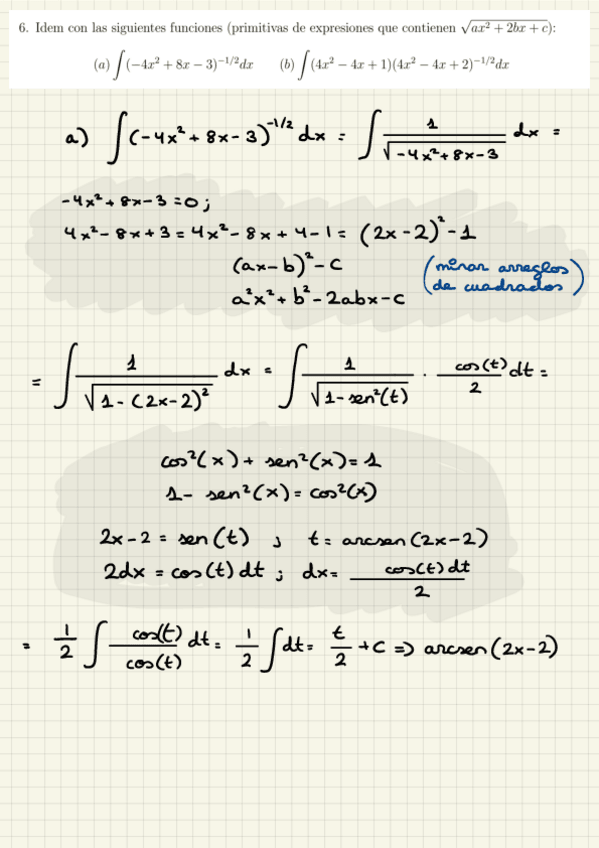 6. Idem con las siguientes funciones (primitivas de expresiones que contienen √(ax² + 2bx + c)):
(a) ∫(−4x² + 8x − 3)^(−1/2) dx (b) ∫(4x² − 4x + 1)(4x² − 4x + 2)^(−1/2) dx
a) ∫(-4x² + 8x - 3)^(-1/2) dx = ∫ 1/√(-4x² + 8x - 3) dx =
-4x² + 8x - 3 = 0;
4x² - 8x + 3 = 4x² - 8x + 4 - 1 = (2x - 2)² - 1
(ax - b)² - c
a²x² + b² - 2abx - c
(mirar arreglos
de cuadrados)
= ∫ 1/√(1 - (2x - 2)²) dx = ∫ 1/√(1 - sen²(t)) · cos(t)/2 dt =
cos²(x) + sen²(x) = 1
1 - sen²(x) = cos²(x)
2x - 2 = sen(t) ; t = arcsen(2x - 2)
2dx = cos(t) dt ; dx = cos(t) dt/2
= 1/2 ∫ cos(t)/cos(t) dt = 1/2 ∫ dt = t/2 + C => arcsen(2x - 2)